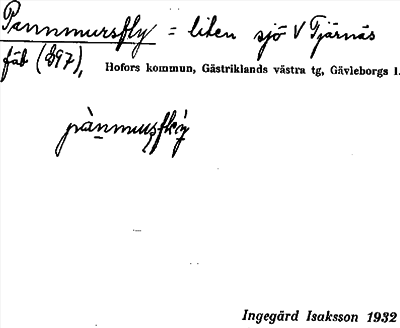 Pannmursfly = liten sjö V Tjärnäs
fäb (897),
Hofors kommun, Gästriklands västra tg, Gävleborgs l.
pànmuʂflẏ
Ingegärd Isaksson 1932